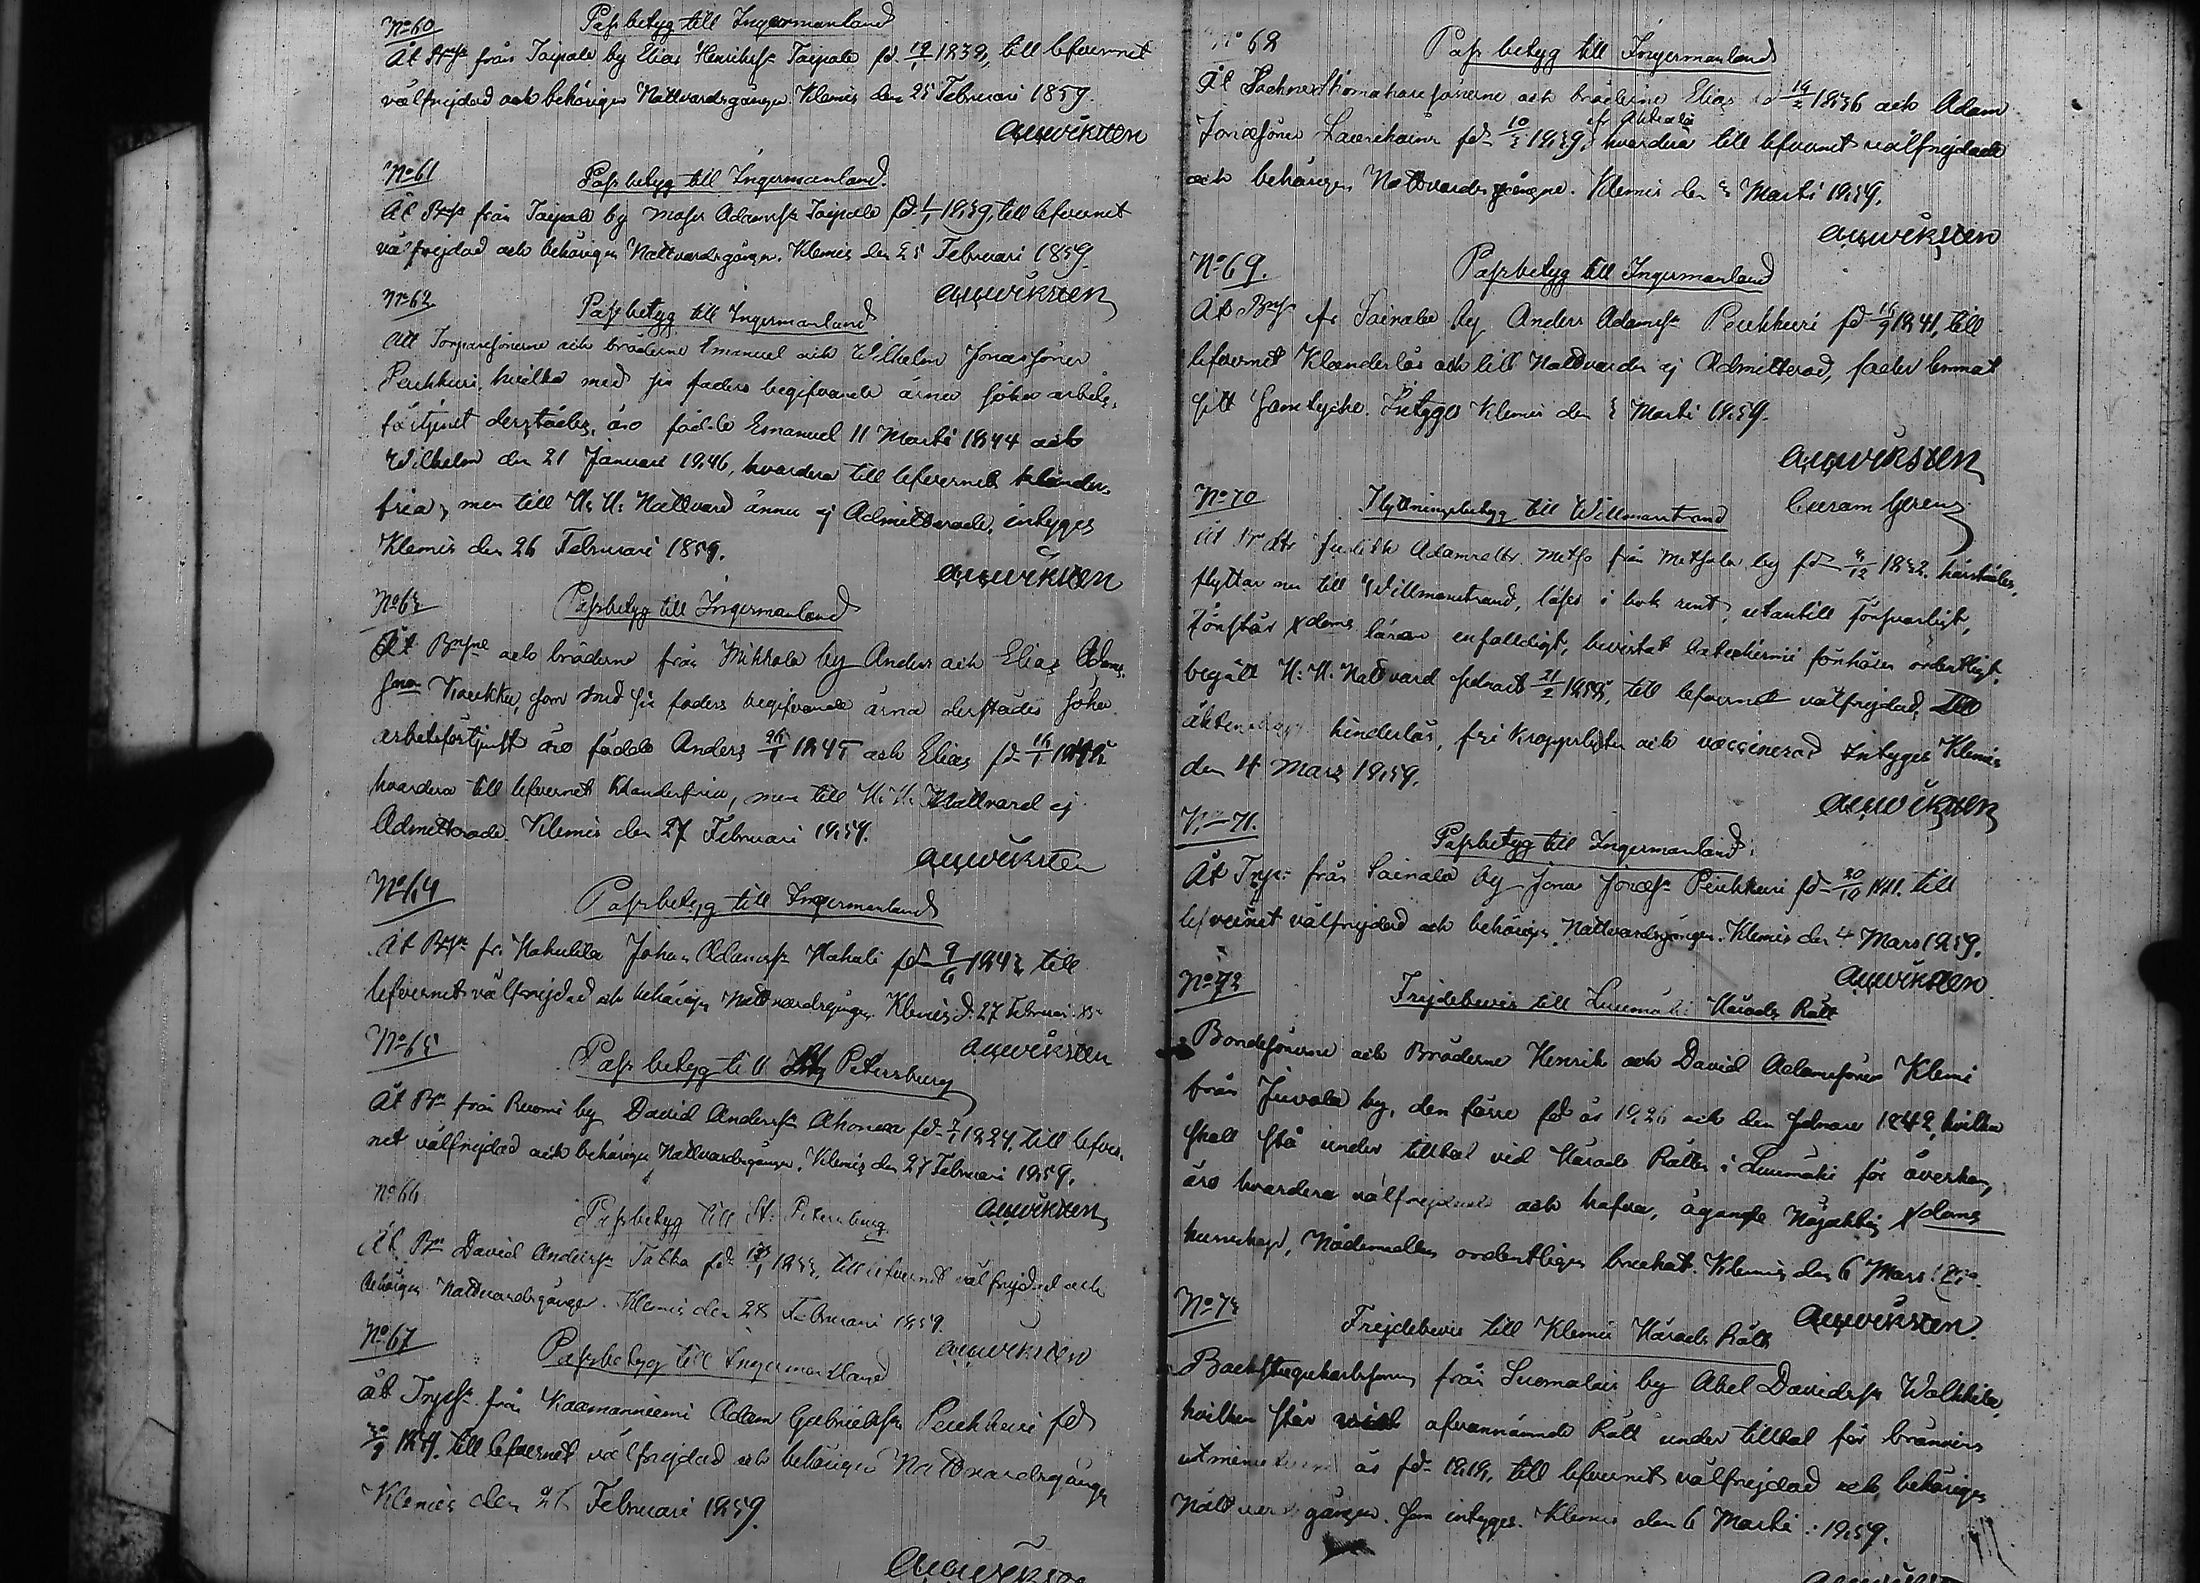 No 60
Passbetyg till Ingermanland
Åt från Taipale by Elias Henriksn Taipale fd till lefvernet
välfrejdad och behörigen Nattvardsgången. Klemis den 25 Februari 1859.
AWiksten
No 61
Passbetyg till Ingermanland.
Åt från Taipale by Moses Adamsn Taipale fd till lefvernet
välfrejdad och behörigen Nattvardsgången. Klemis den 25 Februari 1859.
AWiksten
No 62
Passbetyg till Ingermanland
Att Torparesönerne och bröderne Emanuel och Wilhelm Jonassöner
Peuhkuri, hvilka med sin faders begifvande ärna söka arbets-
förtjenst derstädes, äro födde Emanuel 11 Martii 1844 och
Wilhelm den 21 Januari 1846, hvardera till lefvernet klander-
fria, men till H. H. Nattvard ännu ej Admitterade, intyges
Klemis den 26 Februari 1859.
AWiksten
No 63
Passbetyg till Ingermanland
Åt och bröderne från Mikkola by Anders och Elias Adams-
söner Kaukku, som med sin faders begifvande ärna derstädes söka
arbetsförtjenst äro födde Anders och Elias
hvardera till lefvernet klanderfria, men till H. H. Nattvard ej
Admitterade. Klemis den 27 Februari 1859.
AWiksten
No 64
Passbetyg till Ingermanland
Åt fr. Hakulila Johan Adamsn Hakuli fd till
lefvernet välfrejdad och behörigen Nattvardsgången. Klemis d. 27 Februari
AWiksten
No 65
Passbetyg till St Petersburg
Åt från Ruomi by David Andersn Ahonen fd 1824, till lefver-
net välfrejdad och behörigen Nattvardsgången. Klemis den 27 Februari 1859.
AWiksten
No 66
Passbetyg till St. Petersburg
Åt David Andersn fd till lefvernet välfrejdad och
behörigen Nattvardsgången. Klemis den 28 Februari 1859.
AWiksten
No 67
Passbetyg till Ingermanland
Åt från Kaamanniemi Adam Gabrielsn Peuhkuri fd
till lefvernet välfrejdad och behörigen Nattvardsgången
Klemis den Februari 1859.
AWiksten
No 68
Passbetyg till Ingermanland
Åt Sockneskomakaresönerne och bröderne Elias fd 1836 och Adam
Jonassöner Laurikainen fd 1839, hvardera till lefvernet välfrejdade
och behörigen Nattvardsgångne. Klemis den 3 Martii 1859.
AWiksten
No 69.
Passbetyg till Ingermanland
Åt fr Sainala by Anders Adamsn Peuhkuri fd 1841, till
lefvernet Klanderlös och till Nattvarden ej Admitterad, fader lemnat
sitt Samtycke. Intyges Klemis den 3 Martii 1859.
AWiksten
No 70
Flyttningsbetyg till Willmanstrand
Judith Adamsdtr Metso från Metsola by fd 1832, härstädes,
flyttar nu till Willmanstrand, läser i bok rent, utantill försvarligt,
förstår Xdoms läran enfalldigt, bevistat Catechismi förhören ordentligt,
begått H. H. Nattvard sednast till lefvernet välfrejdad, till
äktenskap hinderlös, fri kroppslyten och vaccinerad Intyges Klemis
den 4 Mars 1859.
AWiksten
No 71.
Passbetyg till Ingermanland.
Åt från Sainala by Jonas Jonasn Peuhkuri fd till
lefvernet välfrejdad och behörigen Nattvardsgången. Klemis den 4 Mars 1859.
AWiksten
No 72
Frejdebevis till Luumäki Härads Rätt
Bondesönerne och Bröderne Henrik och David Adamssöner Klemi
från Juvola by, den förre fd år 1826 och den sednare 1842, hvilka
skall stå under tilltal vid Härads Rätten i Luumäki för åverkan,
äro hvardera välfrejdade och hafva, ägande Nöjaktig Xdoms
kunskap, Nådemedlen ordentligen brukat. Klemis den 6 Mars
AWiksten
No 73
Frejdebevis till Klemis Härads Rätt
Backstugukarlssonen från Suomalais by Abel Davidsn Walkkila,
hvilken står vid ofvannämnde Rätt under tilltal för bränvins
utminutering är fd 1819, till lefvernet välfrejdad och behörigen
Nattvardsgången. Som intyges. Klemis den 6 Martii 1859.